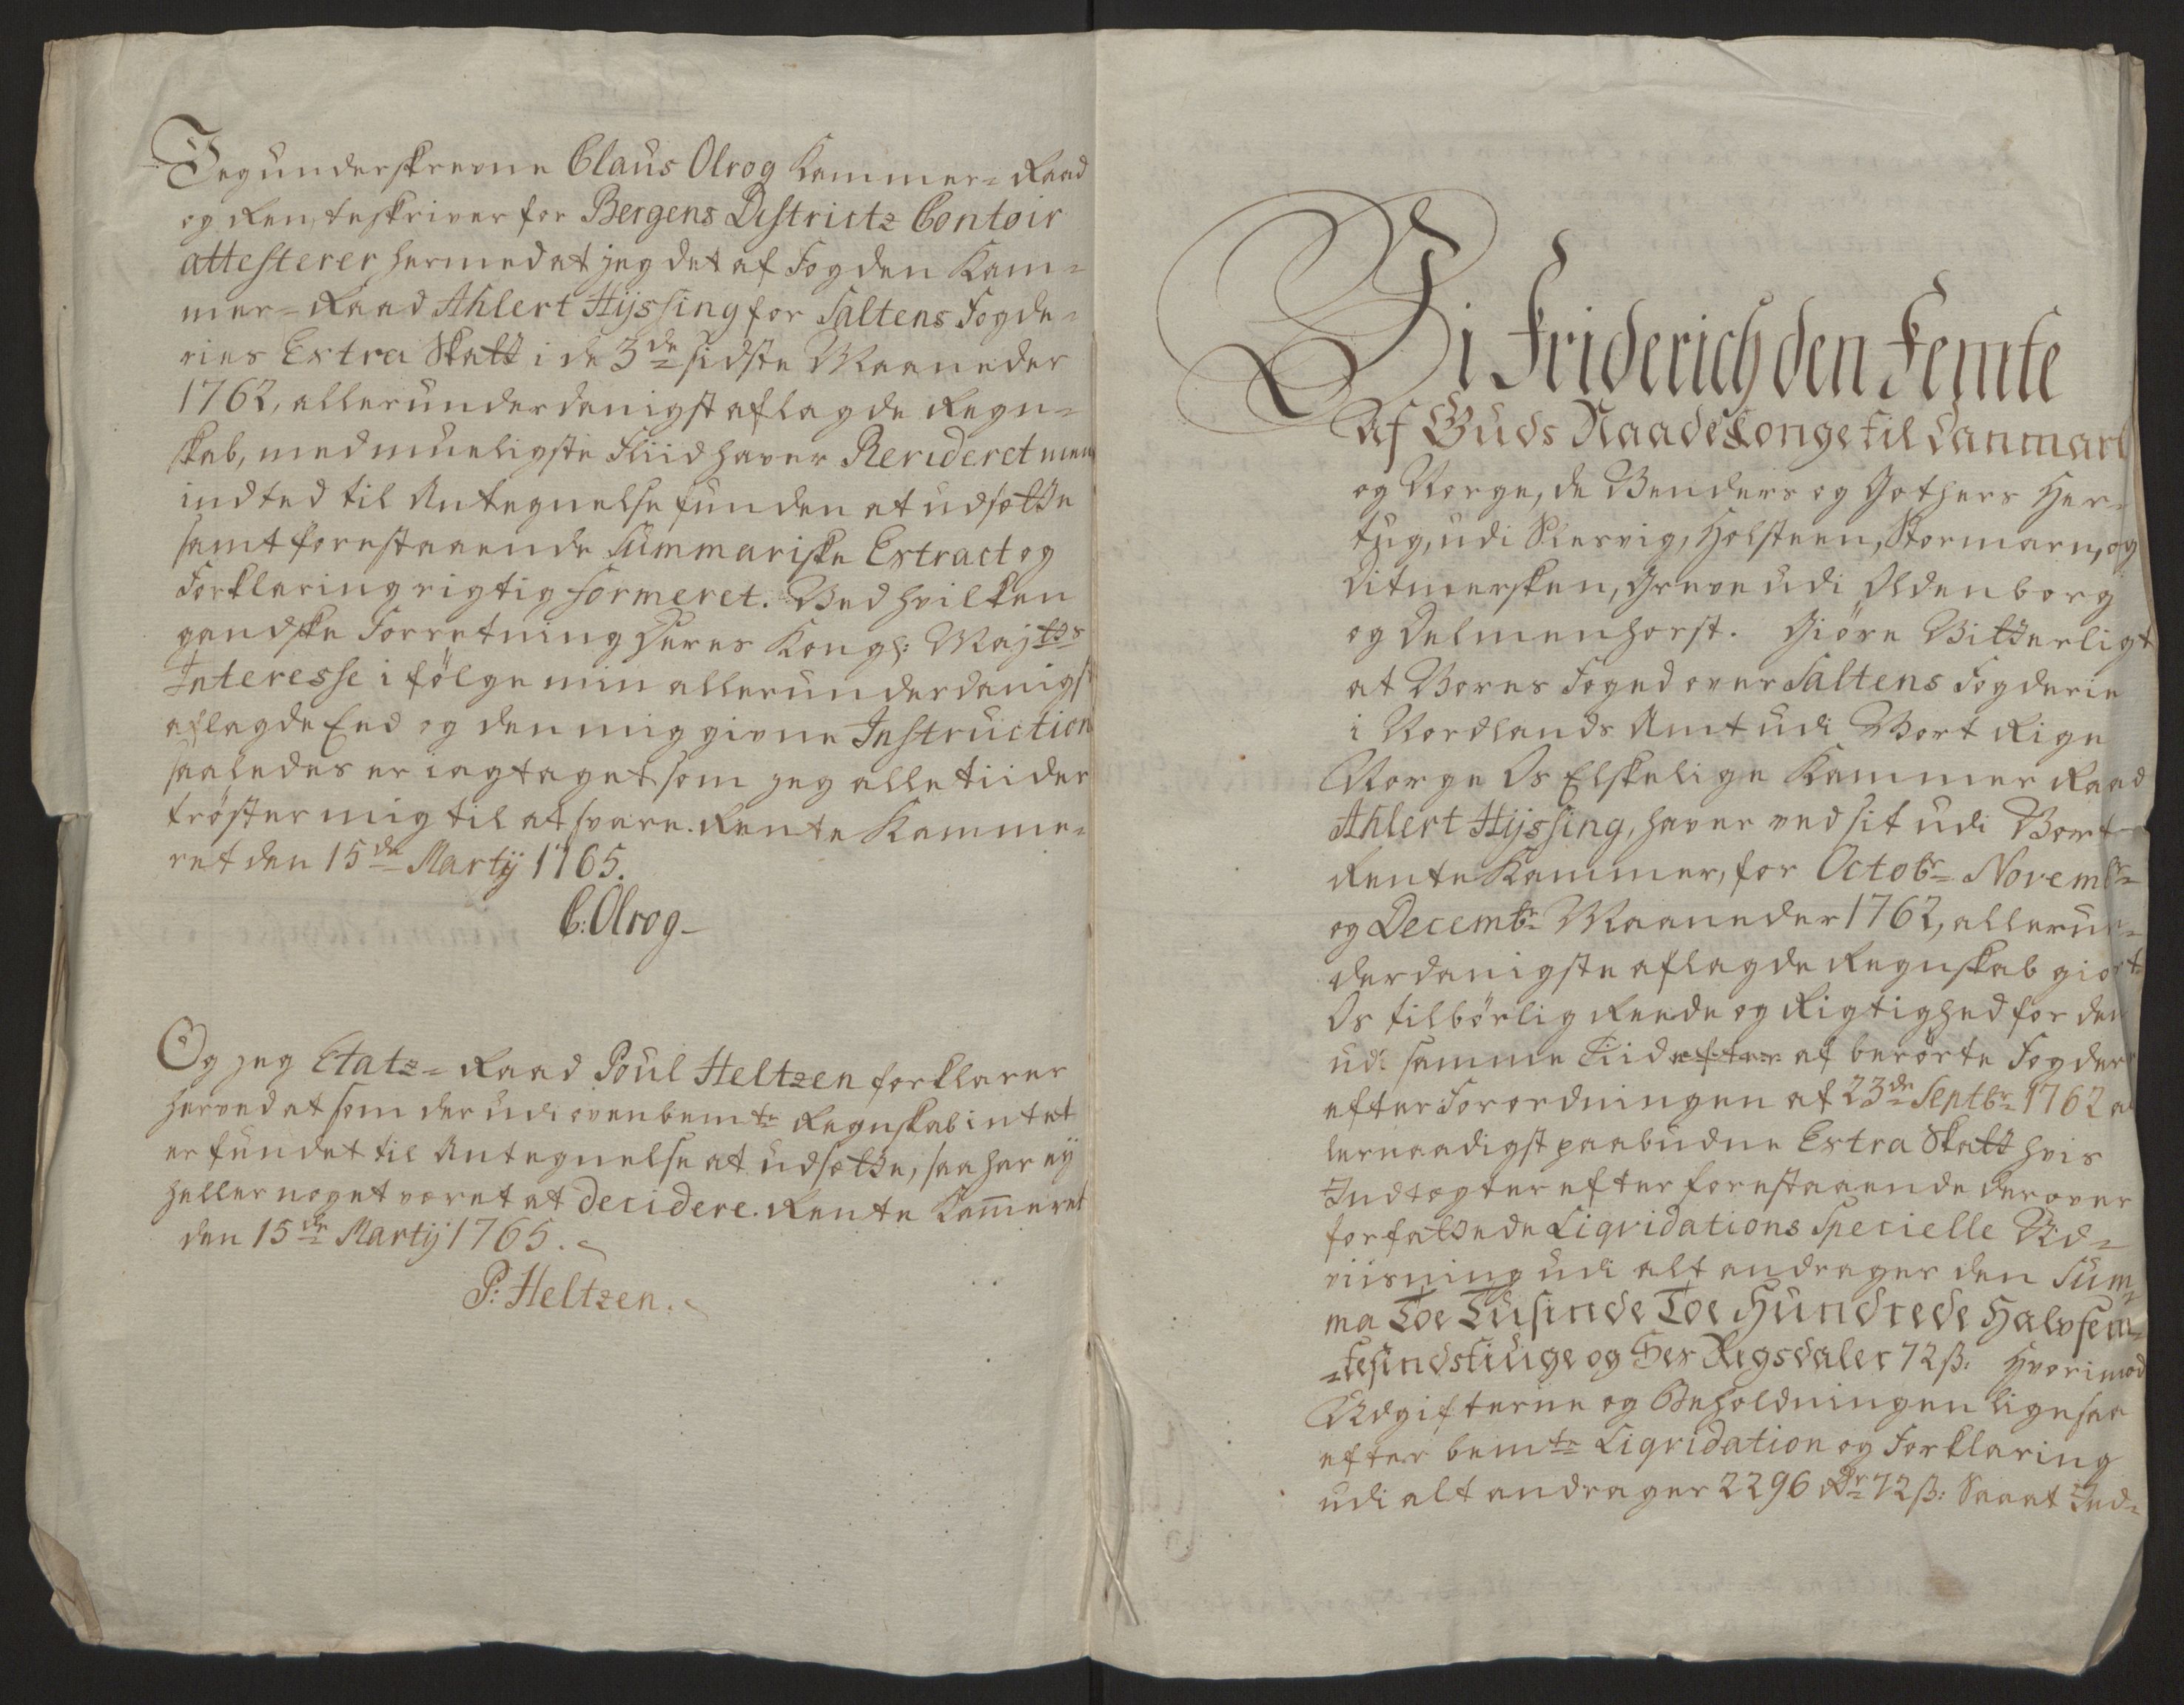 Jeg underskrevne Claus Olrog Kammer= Raad
og Renteskriver for Bergens Districtz Contoir
attesterer hermed at jeg det af Fogden Kam=
mer= Raad Ahlert Hÿssing for Saltens Fogde=
ries Extra Skatt i de 3de sidste Maaneder
1762, allerunderdanigst aflagde Regn=
skab, med mueligste Fliid haver Revideret men
indted til Antegnelse funden at udsætte
samt forestaaende Summariske Extract og
Forklaring rigtig formeret. Ved hvilken
gandske Forretning Deres Kongl: Majtts
Interesse i følge min allerunderdanigst
aflagde Eed og den mig givne Instruction
saaledes er iagtaget som jeg alle tiider
trøster mig til at svare. Rente Kamme=
ret den 15de Martij 1765.
C: Olrog
Og jeg Etatz= Raad Poul Heltzen forklarer
herved at som der udi ovenbemte Regnskab intet
er fundet til Antegnelse at udsætte, saa har ey
heller noget været at decidere. Rente Kam̄eret
den 15de Martij 1765.
P: Heltzen.
Vi Friderich den Femte
Af Guds Naade Konge til Danmark
og Norge, de Venders og Gothers Her=
tug, udi Slesvig, Holsteen, Stormarn, og
Ditmersken, Greve udi Oldenborg
og Delmenhorst. Giøre Vitterligt
at Vores Foged over Saltens Fogderie
i Nordlands Amt udi Vort Rige
Norge Os Elskelige Kammer Raad
Ahlert Hÿssing, haver ved sit udi Vort
Rente Kammer, for Octobr Novembr
og Decembr Maaneder 1762, allerun=
derdanigste aflagde Regnskab giort
Os tilbørlig Reede og Rigtighed for den
udi samme Tiid efter af berørte Fogderi
efter Forordningen af 23de Septbr 1762 al
lernaadigst paabudne Extra Skatt hvis
Indtægter efter forestaaende derover
forfattede Liqvidations Specielle Ud=
viisning udi alt andrager den Sum=
ma Toe Tusinde Toe Hundrede Halvfem=
=tesindstiuge og Sex Rigsdaler 72 ß: Hvorimod
Udgifterne og Beholdningen ligesaa
efter bemte Liqvidation og Forklaring
udi alt andrager 2296 Rdr 72 ß: Saa at Ind=